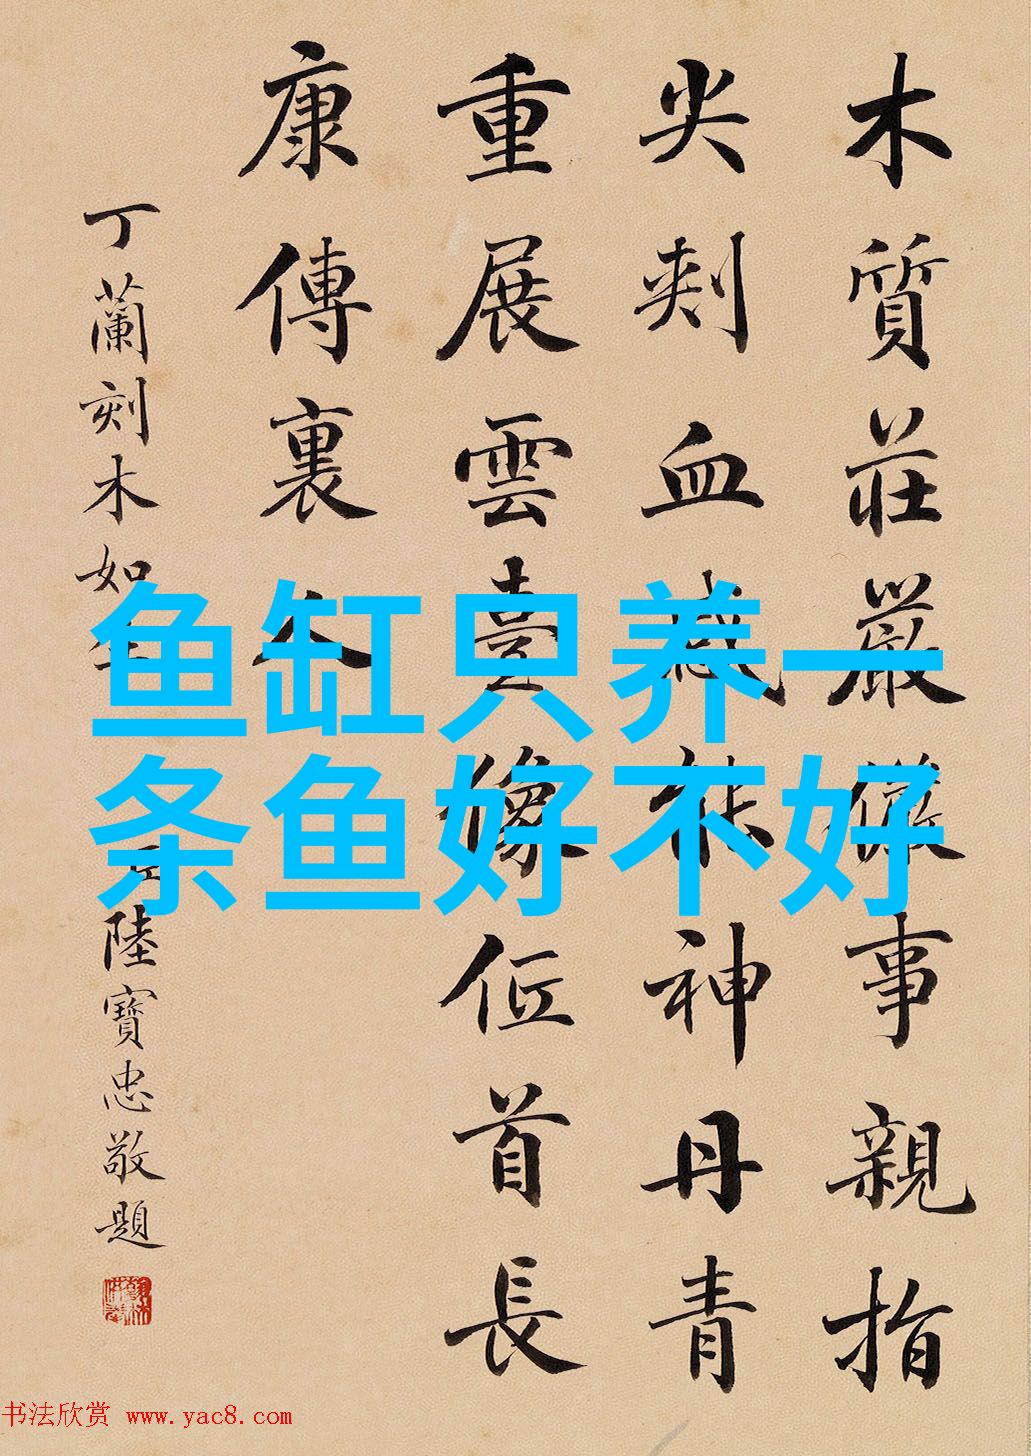 木質莊嚴儼事親指
尖刾血感能神丹青
重展雲臺像位首長
康傳裏人
丁蘭刻木如生
臣陸寶忠敬題
鱼缸只养一
条鱼好不好
书法欣赏 www.yac8.com